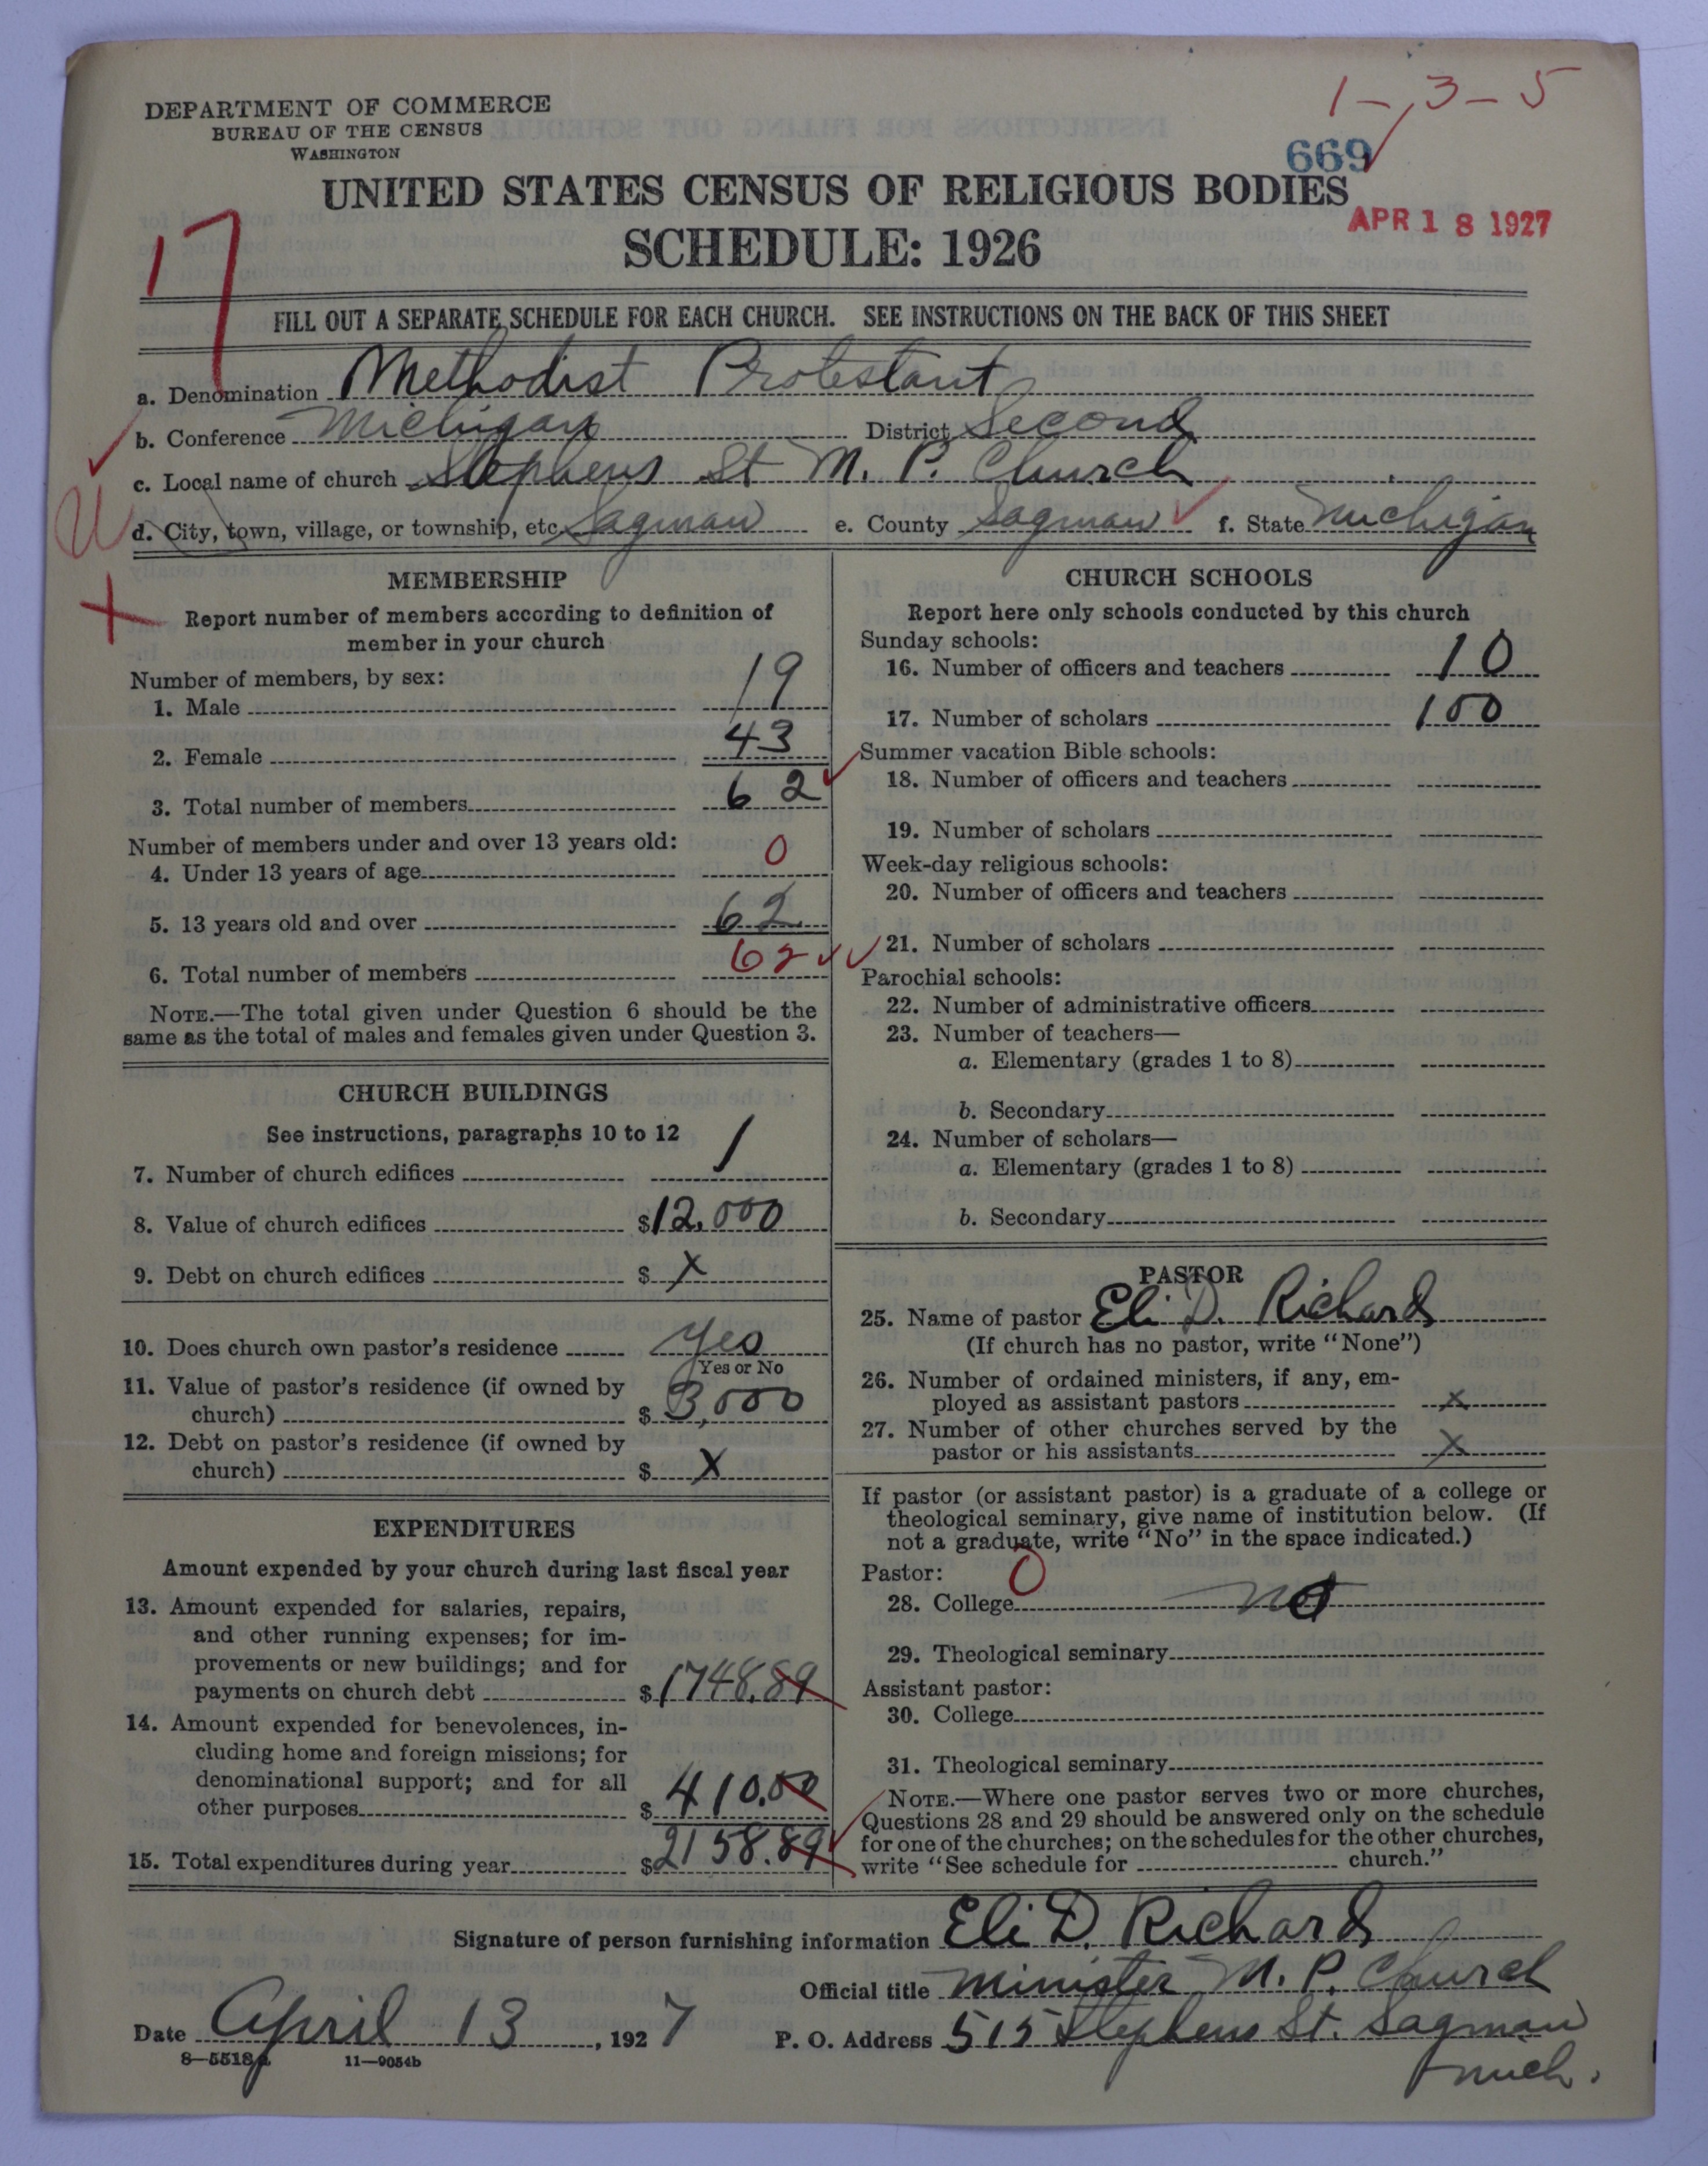 1-3-5
DEPARTMENT OF COMMERCE
BUREAU OF THE CENSUS
WASHINGTON
669
UNITED STATES CENSUS OF RELIGIOUS BODIES
APR 18 1927
SCHEDULE: 1926
17
FILL OUT A SEPARATE SCHEDULE FOR EACH CHURCH. SEE INSTRUCTIONS ON THE BACK OF THIS SHEET
a. Denomination Methodist Protestant
b. Conference Michigan District Second
c. Local name of church Stephens St M. P. Church
d. City, town, village, or township, etc. Saginaw e. County Saginaw f. State Michigan
MEMBERSHIP
Report number of members according to definition of
member in your church
Number of members, by sex:
1. Male 19
2. Female 43
3. Total number of members 62
Number of members under and over 13 years old:
4. Under 13 years of age 0
5. 13 years old and over 62
6. Total number of members 62
NOTE.—The total given under Question 6 should be the
same as the total of males and females given under Question 3.
CHURCH BUILDINGS
See instructions, paragraphs 10 to 12
7. Number of church edifices 1
8. Value of church edifices $12,000
9. Debt on church edifices $ X
10. Does church own pastor's residence yes
Yes or No
11. Value of pastor's residence (if owned by
church) $ 3,000
12. Debt on pastor's residence (if owned by
church) $ X
EXPENDITURES
Amount expended by your church during last fiscal year
13. Amount expended for salaries, repairs,
and other running expenses; for im-
provements or new buildings; and for
payments on church debt $1748.89
14. Amount expended for benevolences, in-
cluding home and foreign missions; for
denominational support; and for all
other purposes $ 410.00
15. Total expenditures during year $2158.89
CHURCH SCHOOLS
Report here only schools conducted by this church
Sunday schools:
16. Number of officers and teachers 10
17. Number of scholars 100
Summer vacation Bible schools:
18. Number of officers and teachers
19. Number of scholars
Week-day religious schools:
20. Number of officers and teachers
21. Number of scholars
Parochial schools:
22. Number of administrative officers
23. Number of teachers—
a. Elementary (grades 1 to 8)
b. Secondary
24. Number of scholars—
a. Elementary (grades 1 to 8)
b. Secondary
PASTOR
25. Name of pastor Eli D. Richard
(If church has no pastor, write "None")
26. Number of ordained ministers, if any, em-
ployed as assistant pastors X
27. Number of other churches served by the
pastor or his assistants X
If pastor (or assistant pastor) is a graduate of a college or
theological seminary, give name of institution below. (If
not a graduate, write "No" in the space indicated.)
Pastor: 0
28. College no
29. Theological seminary
Assistant pastor:
30. College
31. Theological seminary
NOTE.—Where one pastor serves two or more churches,
Questions 28 and 29 should be answered only on the schedule
for one of the churches; on the schedules for the other churches,
write "See schedule for church."
Signature of person furnishing information Eli D. Richard
Official title Minister M. P. Church
Date April 13, 1927 P. O. Address 515 Stephens St. Saginaw
Mich.
8-5518a 11-9054b